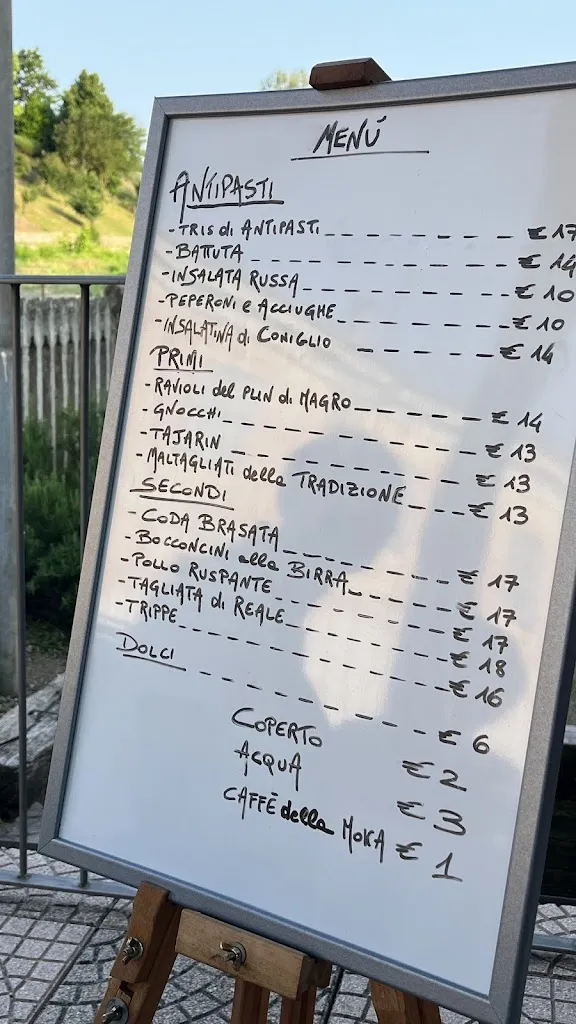 MENÚ
ANTIPASTI
- TRIS di ANTIPASTI € 17
- BATTUTA € 14
- INSALATA RUSSA € 10
- PEPERONI e ACCIUGHE € 10
- INSALATINA di CONIGLIO € 14
PRIMI
- RAVIOLI del PLIN di MAGRO € 14
- GNOCCHI € 13
- TAJARIN € 13
- MALTAGLIATI della TRADIZIONE € 13
SECONDI
- CODA BRASATA € 17
- BOCCONCINI alla BIRRA € 17
- POLLO RUSPANTE € 17
- TAGLIATA di REALE € 18
- TRIPPE € 16
DOLCI € 6
COPERTO € 2
ACQUA € 3
CAFFÈ della MOKA € 1